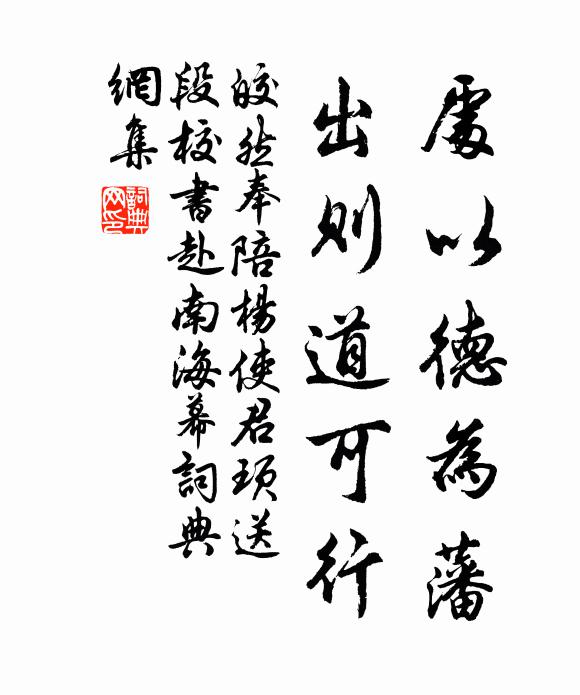 處以德為藩
出則道可行
皎然奉陪楊使君頊送
段校書赴南海幕詞典
網集
詞典
网印